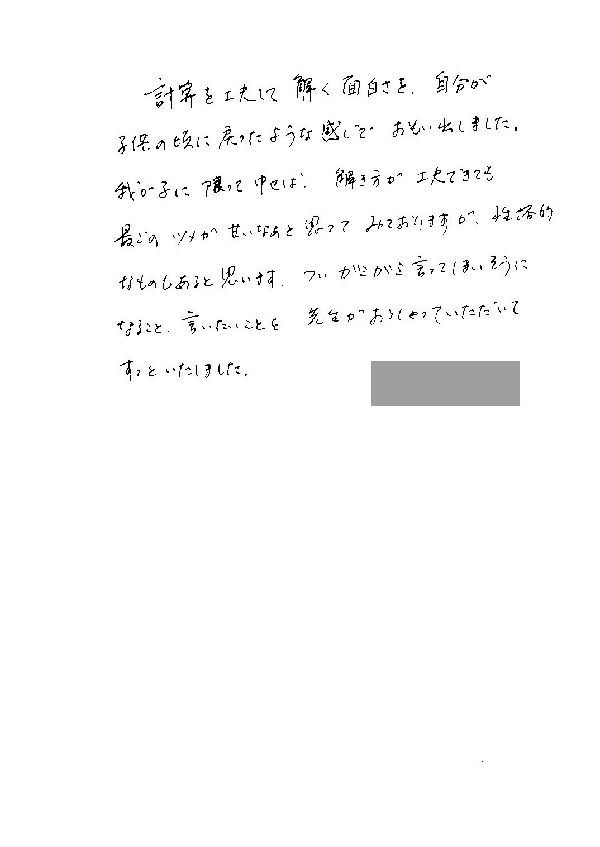 計算を工夫して解く面白さを、自分が
子供の頃に戻ったような感じで おもい出しました。
我が子に限って申せば、解き方が工夫できても
最ごのツメが甘いなあと思って みておりますが、性格的
なものもあると思います。ついガミガミ言ってしまいそうに
なること、言いたいことを 先生がおっしゃっていただいて
すっといたしました。